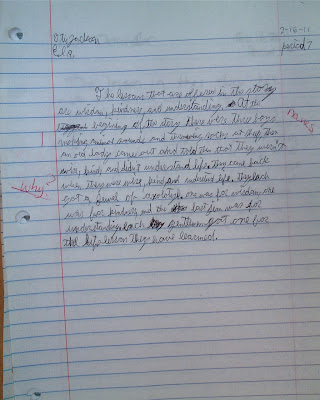 Jackson 2-16-11
period 7
The lessons that are offered in the story
are wisdom, kindness, and understanding. At the
beginning of the story there were three boys
making animal sounds and looking at sheep then
an old lady came out and told them that they weren't
wise, kind, and didn't understand life. They came back
when they were wise, kind, and understood life. They each
got a jewel of apology. one was for wisdom, one
was for kindness, and the last one was for
understanding. each got one for
the lesson they have learned.
why?
names